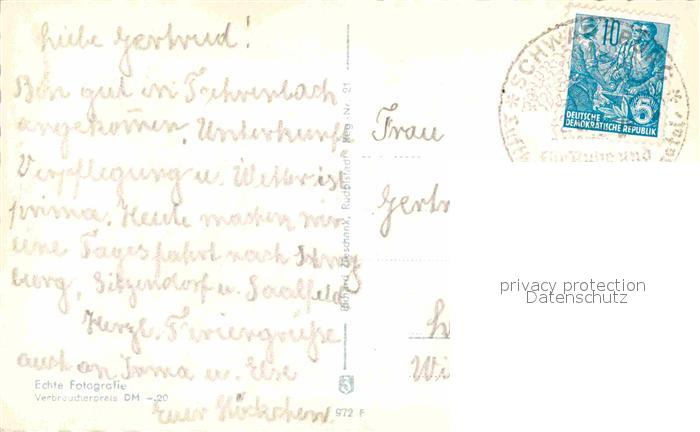 Liebe Gertrud!
Bin gut in Fehrenbach
angekommen. Unterkunft
Verpflegung u. Wetter ist
prima. Heute machen wir
eine Tagesfahrt nach
berg, Sitzendorf u. Saalfeld.
Herzl. Feriengrüße
auch an Irma u. Else
Euer
Echte Fotografie
Verbraucherpreis DM -.20
Rudolstadt Reg.-Nr. 21
972 F
Frau
Gertr
Wi
10
5
DEUTSCHE
DEMOKRATISCHE REPUBLIK
SCHWARZBURG
für Ruhe und
privacy protection
Datenschutz